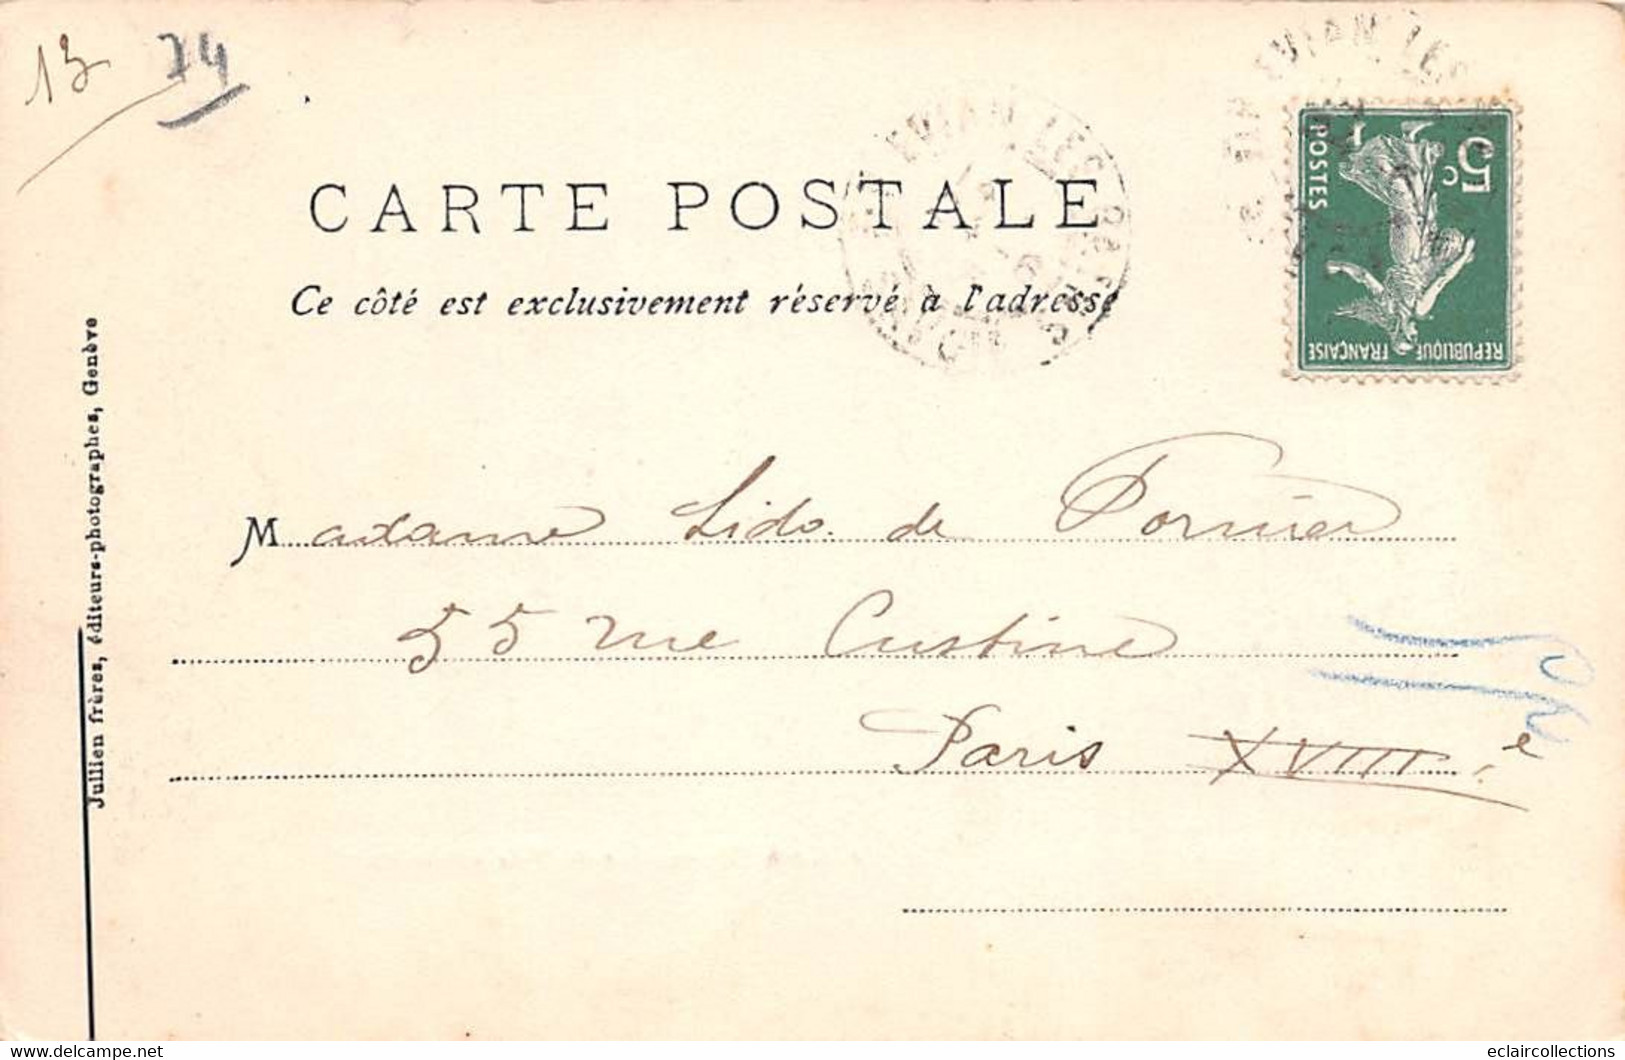 13 74
EVIAN LES
EVIAN LES
5c
POSTES
REPUBLIQUE FRANÇAISE
CARTE POSTALE
Ce côté est exclusivement réservé à l'adresse
Jullien frères, éditeurs-photographes, Genève
Madame Lido de
55 rue Custine
Paris XVIIIe
www.delcampe.net
eclaircollections